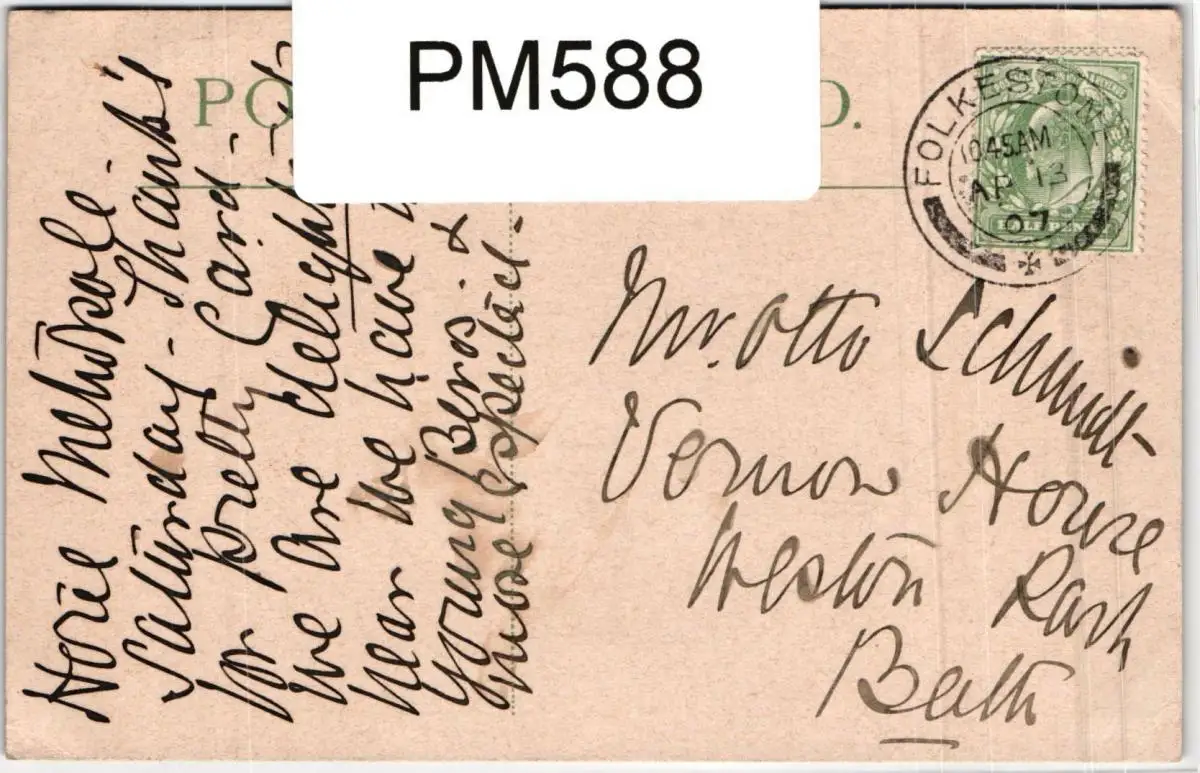 PM588
PO
D.
FOLKESTONE
10.45AM
AP 13
07
Hotel Metropole.
Saturday - Thanks
for pretty Card -
We are delighted
hear we have
young Beros. &
more expected.
Mr. Otto Schmidt
Vernon House
Weston Park
Bath